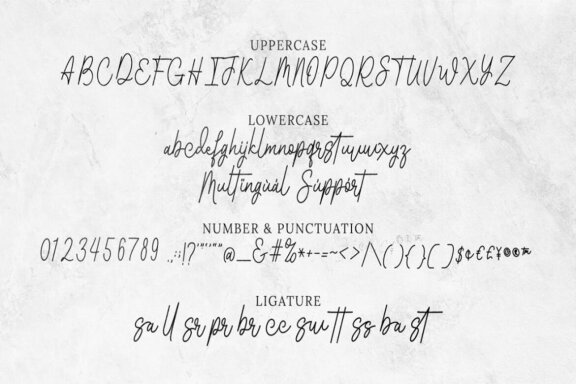 UPPERCASE
ABCDEFGHIJKLMNOPQRSTUVWXYZ
LOWERCASE
abcdefghijklmnopqrstuvwxyz
Multingùål Sùppórt
NUMBER & PUNCTUATION
0123456789 .,:;!?'"‘’“”@_&#%*+-=~<>/|\(){}[]$¢€£¥©®™
LIGATURE
sa ll sr pr br cc sw tt ss ba st